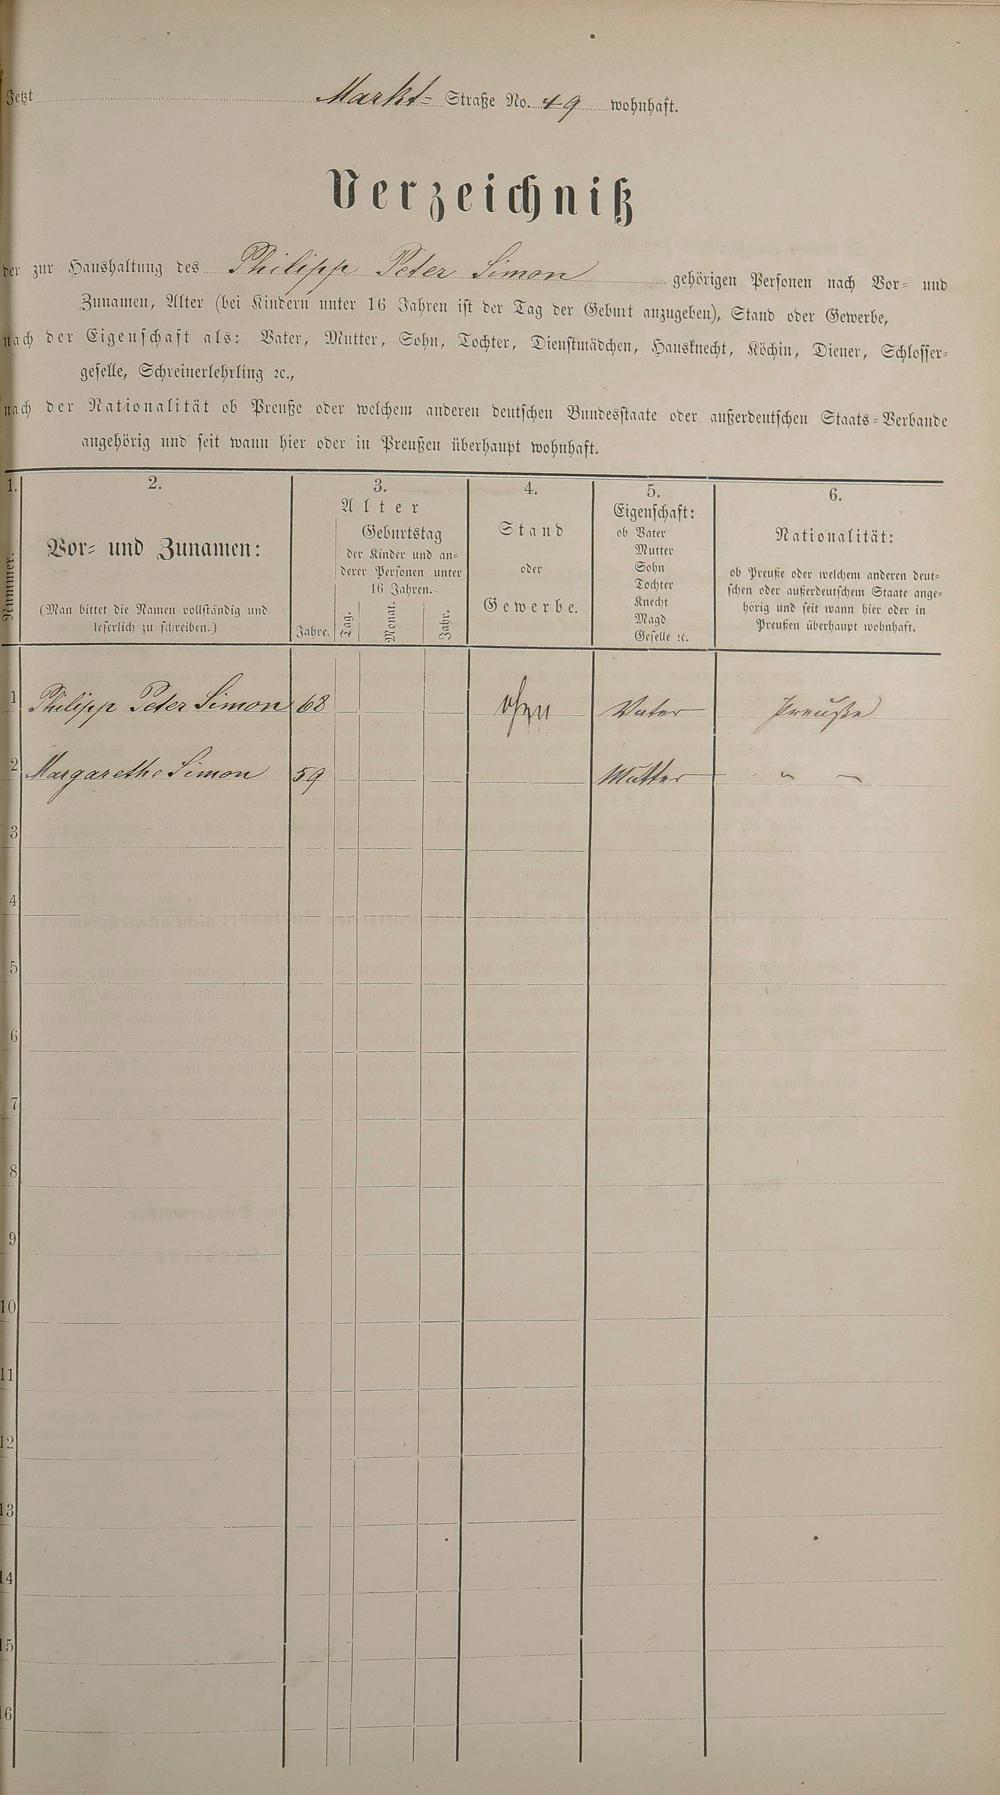 Jetzt Markt- Straße No. 49 wohnhaft.
Verzeichniß
der zur Haushaltung des Philipp Peter Simon gehörigen Personen nach Vor- und
Zunamen, Alter (bei Kindern unter 16 Jahren ist der Tag der Geburt anzugeben), Stand oder Gewerbe,
nach der Eigenschaft als: Vater, Mutter, Sohn, Tochter, Dienstmädchen, Hausknecht, Köchin, Diener, Schlosser-
geselle, Schreinerlehrling ꝛc.,
nach der Nationalität ob Preuße oder welchem anderen deutschen Bundesstaate oder außerdeutschen Staats-Verbande
angehörig und seit wann hier oder in Preußen überhaupt wohnhaft.
1.
Nummer.
2.
Vor- und Zunamen:
(Man bittet die Namen vollständig und
leserlich zu schreiben.)
3.
Alter
Jahre.
Geburtstag
der Kinder und an-
derer Personen unter
16 Jahren.
Tag.
Monat.
Jahr.
4.
Stand
oder
Gewerbe.
5.
Eigenschaft:
ob Vater
Mutter
Sohn
Tochter
Knecht
Magd
Geselle ꝛc.
6.
Nationalität:
ob Preuße oder welchem anderen deut-
schen oder außerdeutschem Staate ange-
hörig und seit wann hier oder in
Preußen überhaupt wohnhaft.
1 Philipp Peter Simon 68 Vater Preuße
2 Margarethe Simon 59 Mutter " "
3
4
5
6
7
8
9
10
11
12
13
14
15
16